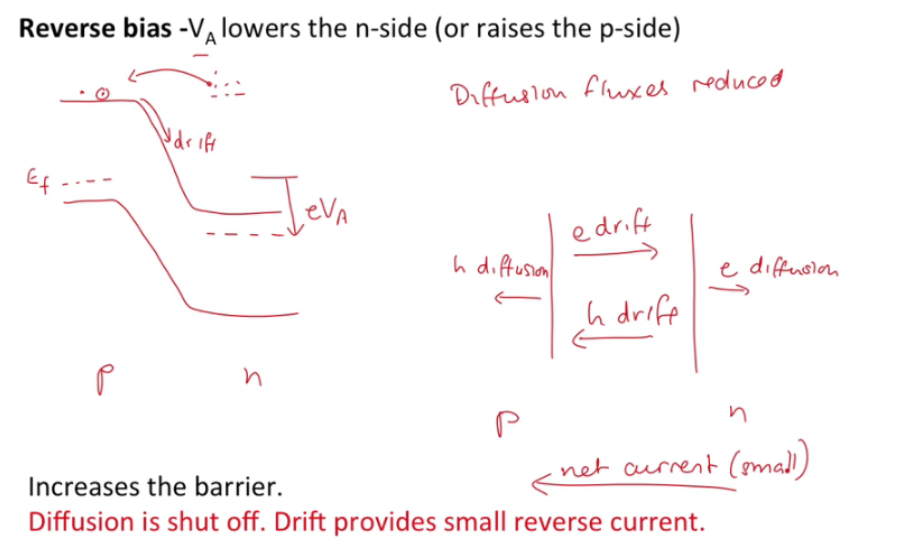 Reverse bias -VA lowers the n-side (or raises the p-side)
Diffusion fluxes reduced
drift
Ef
eVA
e drift
h diffusion
e diffusion
h drift
p
n
p
n
net current (small)
Increases the barrier.
Diffusion is shut off. Drift provides small reverse current.